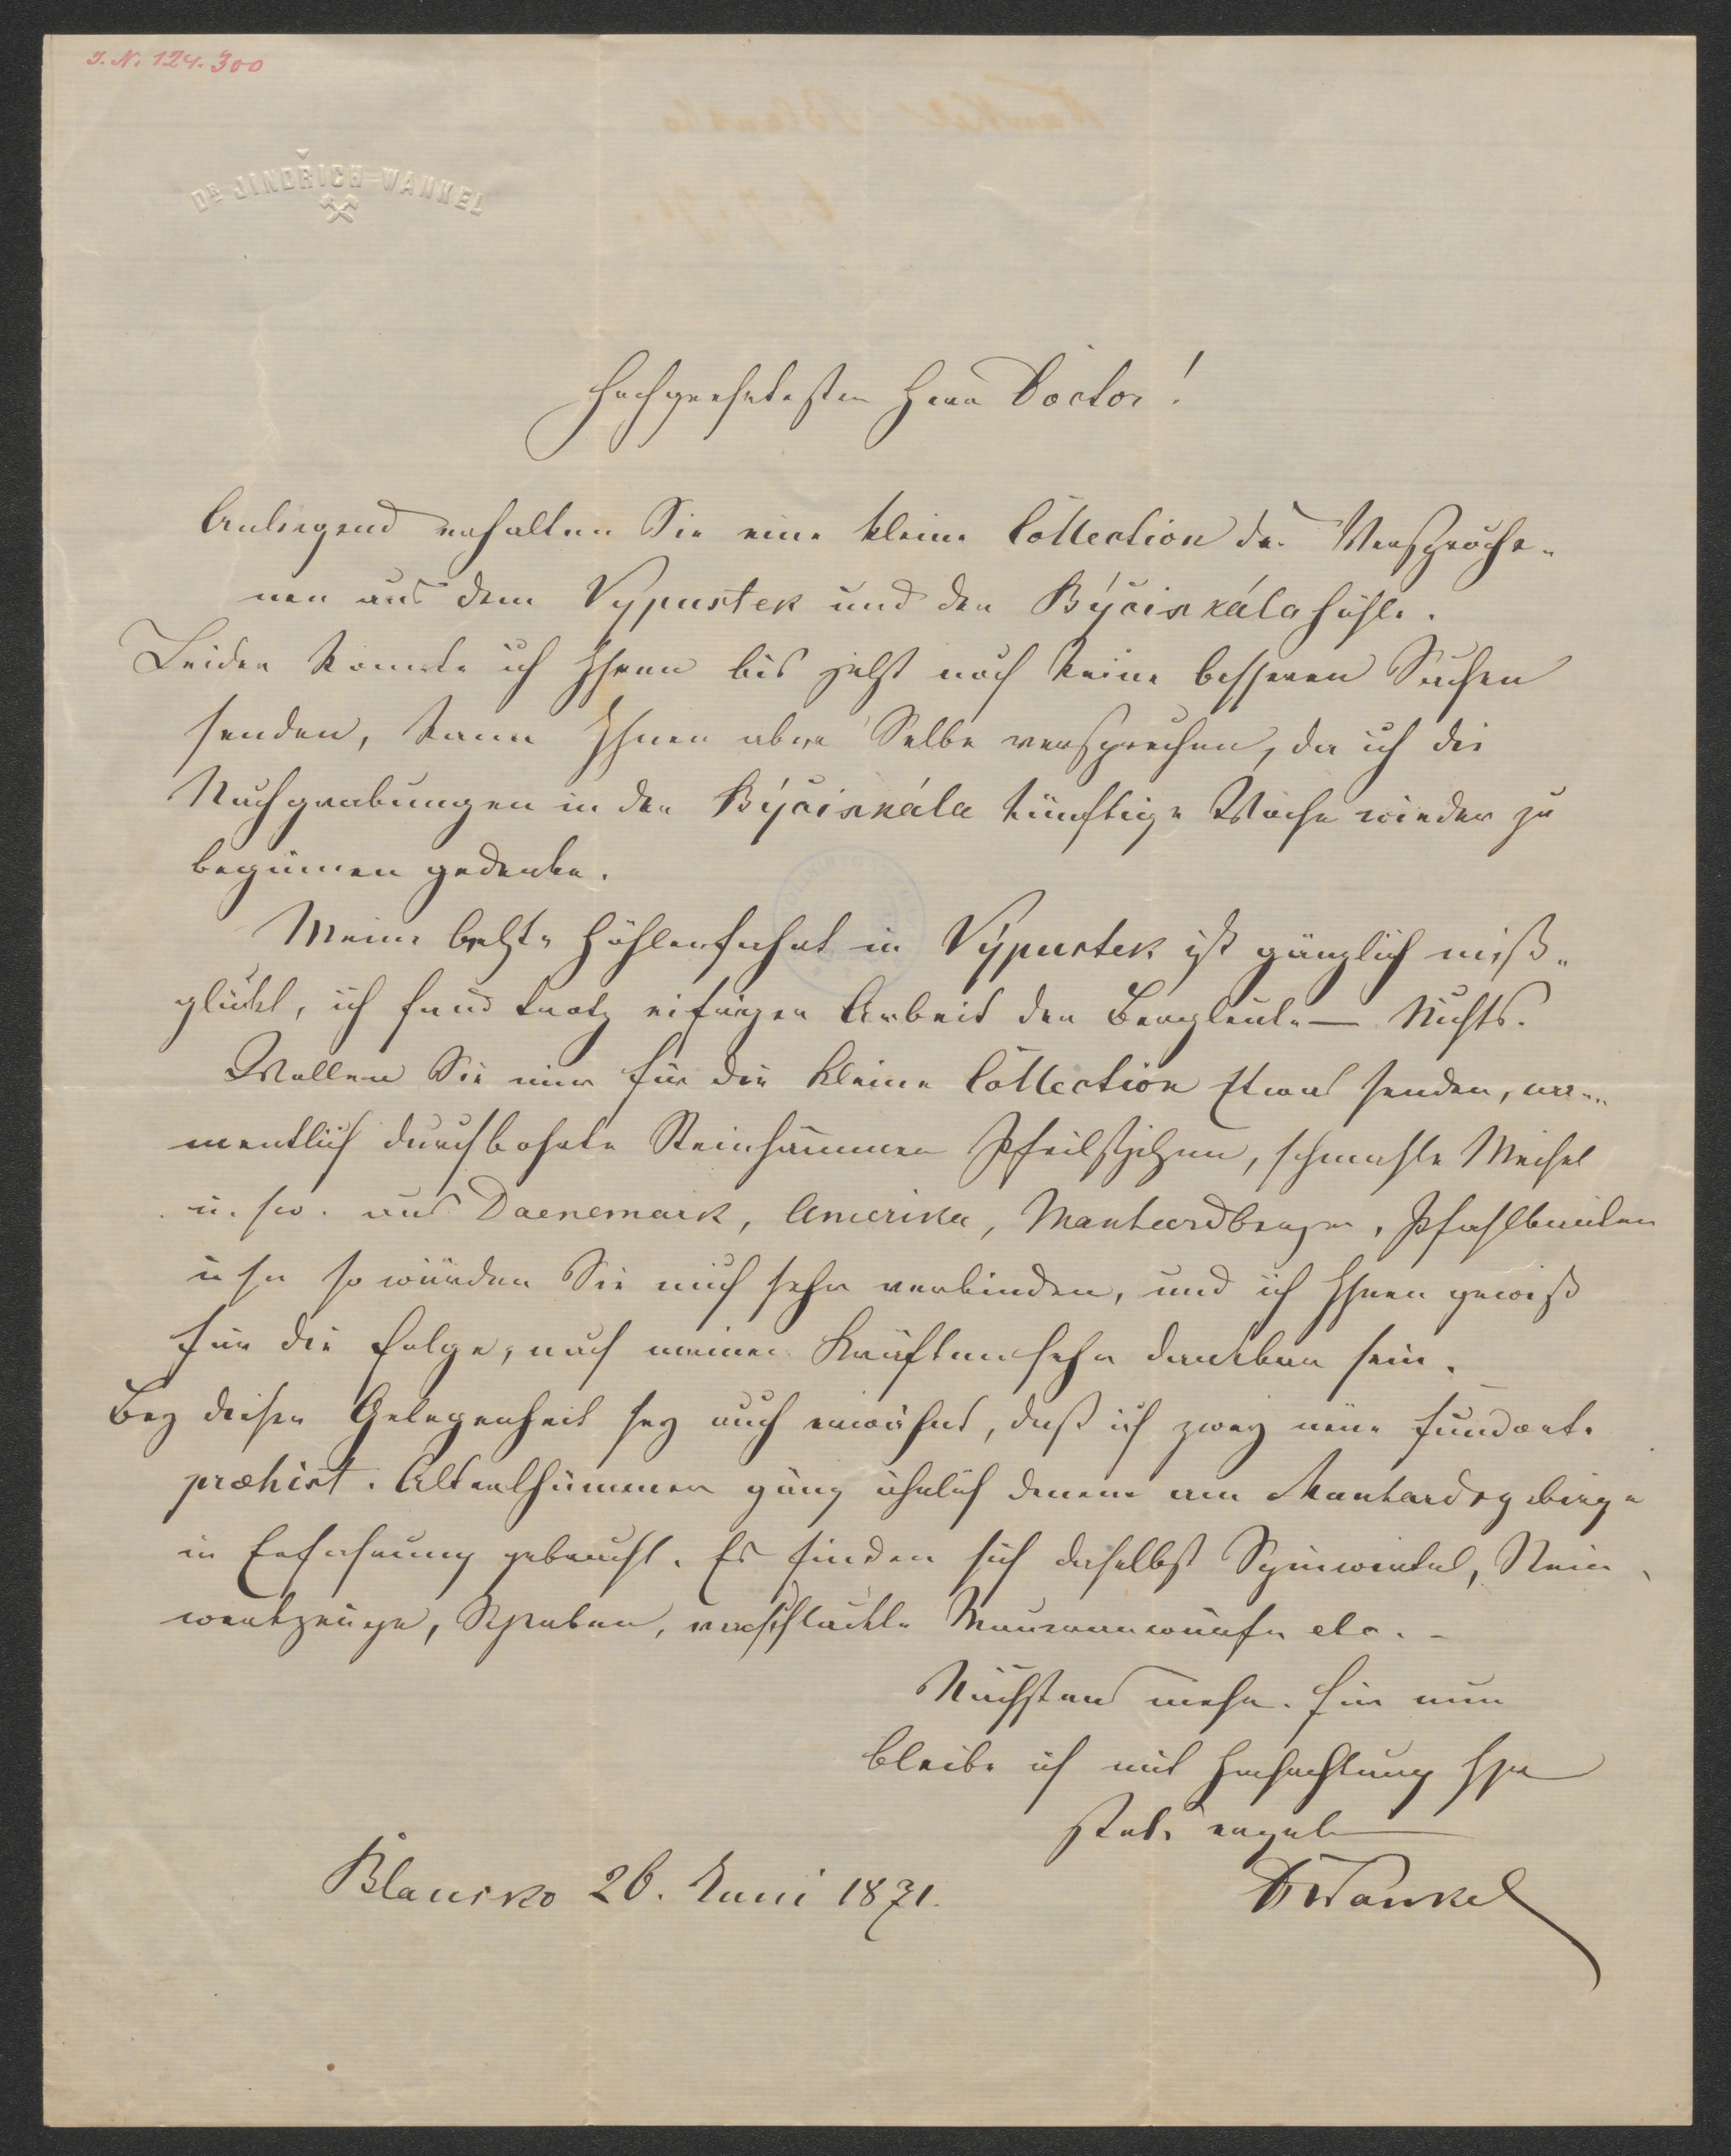 J. N. 124.300
DR JINDŘICH WANKEL
Hochgeehrtester Herr Doctor!
Anliegend erhalten Sie eine kleine Collection der Versproche-
nen aus dem Vypustek und der Býčiskálahöhle.
Leider konnte ich Ihnen bis jetzt noch keine besseren Sachen
senden, kann Ihnen aber Selbe versprechen, da ich die
Nachgrabungen in der Býčiskála künftige Woche wieder zu
beginnen gedenke.
Meine letzte Höhlenfahrt in Vypustek ist gänzlich miß-
glückt, ich fand trotz eifriger Arbeit der Bergleute — Nichts.
Wollen Sie mir für die kleine Collection Etwas senden, na-
mentlich durchbohrte Steinhämmer Pfeilspitzen, schmahle Meisel
u. sw. aus Daenemark, Amerika, Manhardberge, Pfahlbauten
so würden Sie mich sehr verbinden, und ich Ihnen gewiß
für die Folge, nach meinen Kräften sehr dankbar sein.
Bey dieser Gelegenheit sey auch erwähnt, daß ich zwey neue Fundorte
præhist. Alterthümmer ganz ähnlich denen am Manhardsgebirge
in Erfahrung gebracht. Es finden sich daselbst Spinwirtel, Stein-
werkzeuge, Scherben, verschlackte Maueranwürfe etc. -
Nächstens mehr. Für nun
bleibe ich mit Hochachtung Ihr
stets ergeb
Blansko 26. Juni 1871.
Dr Wankel